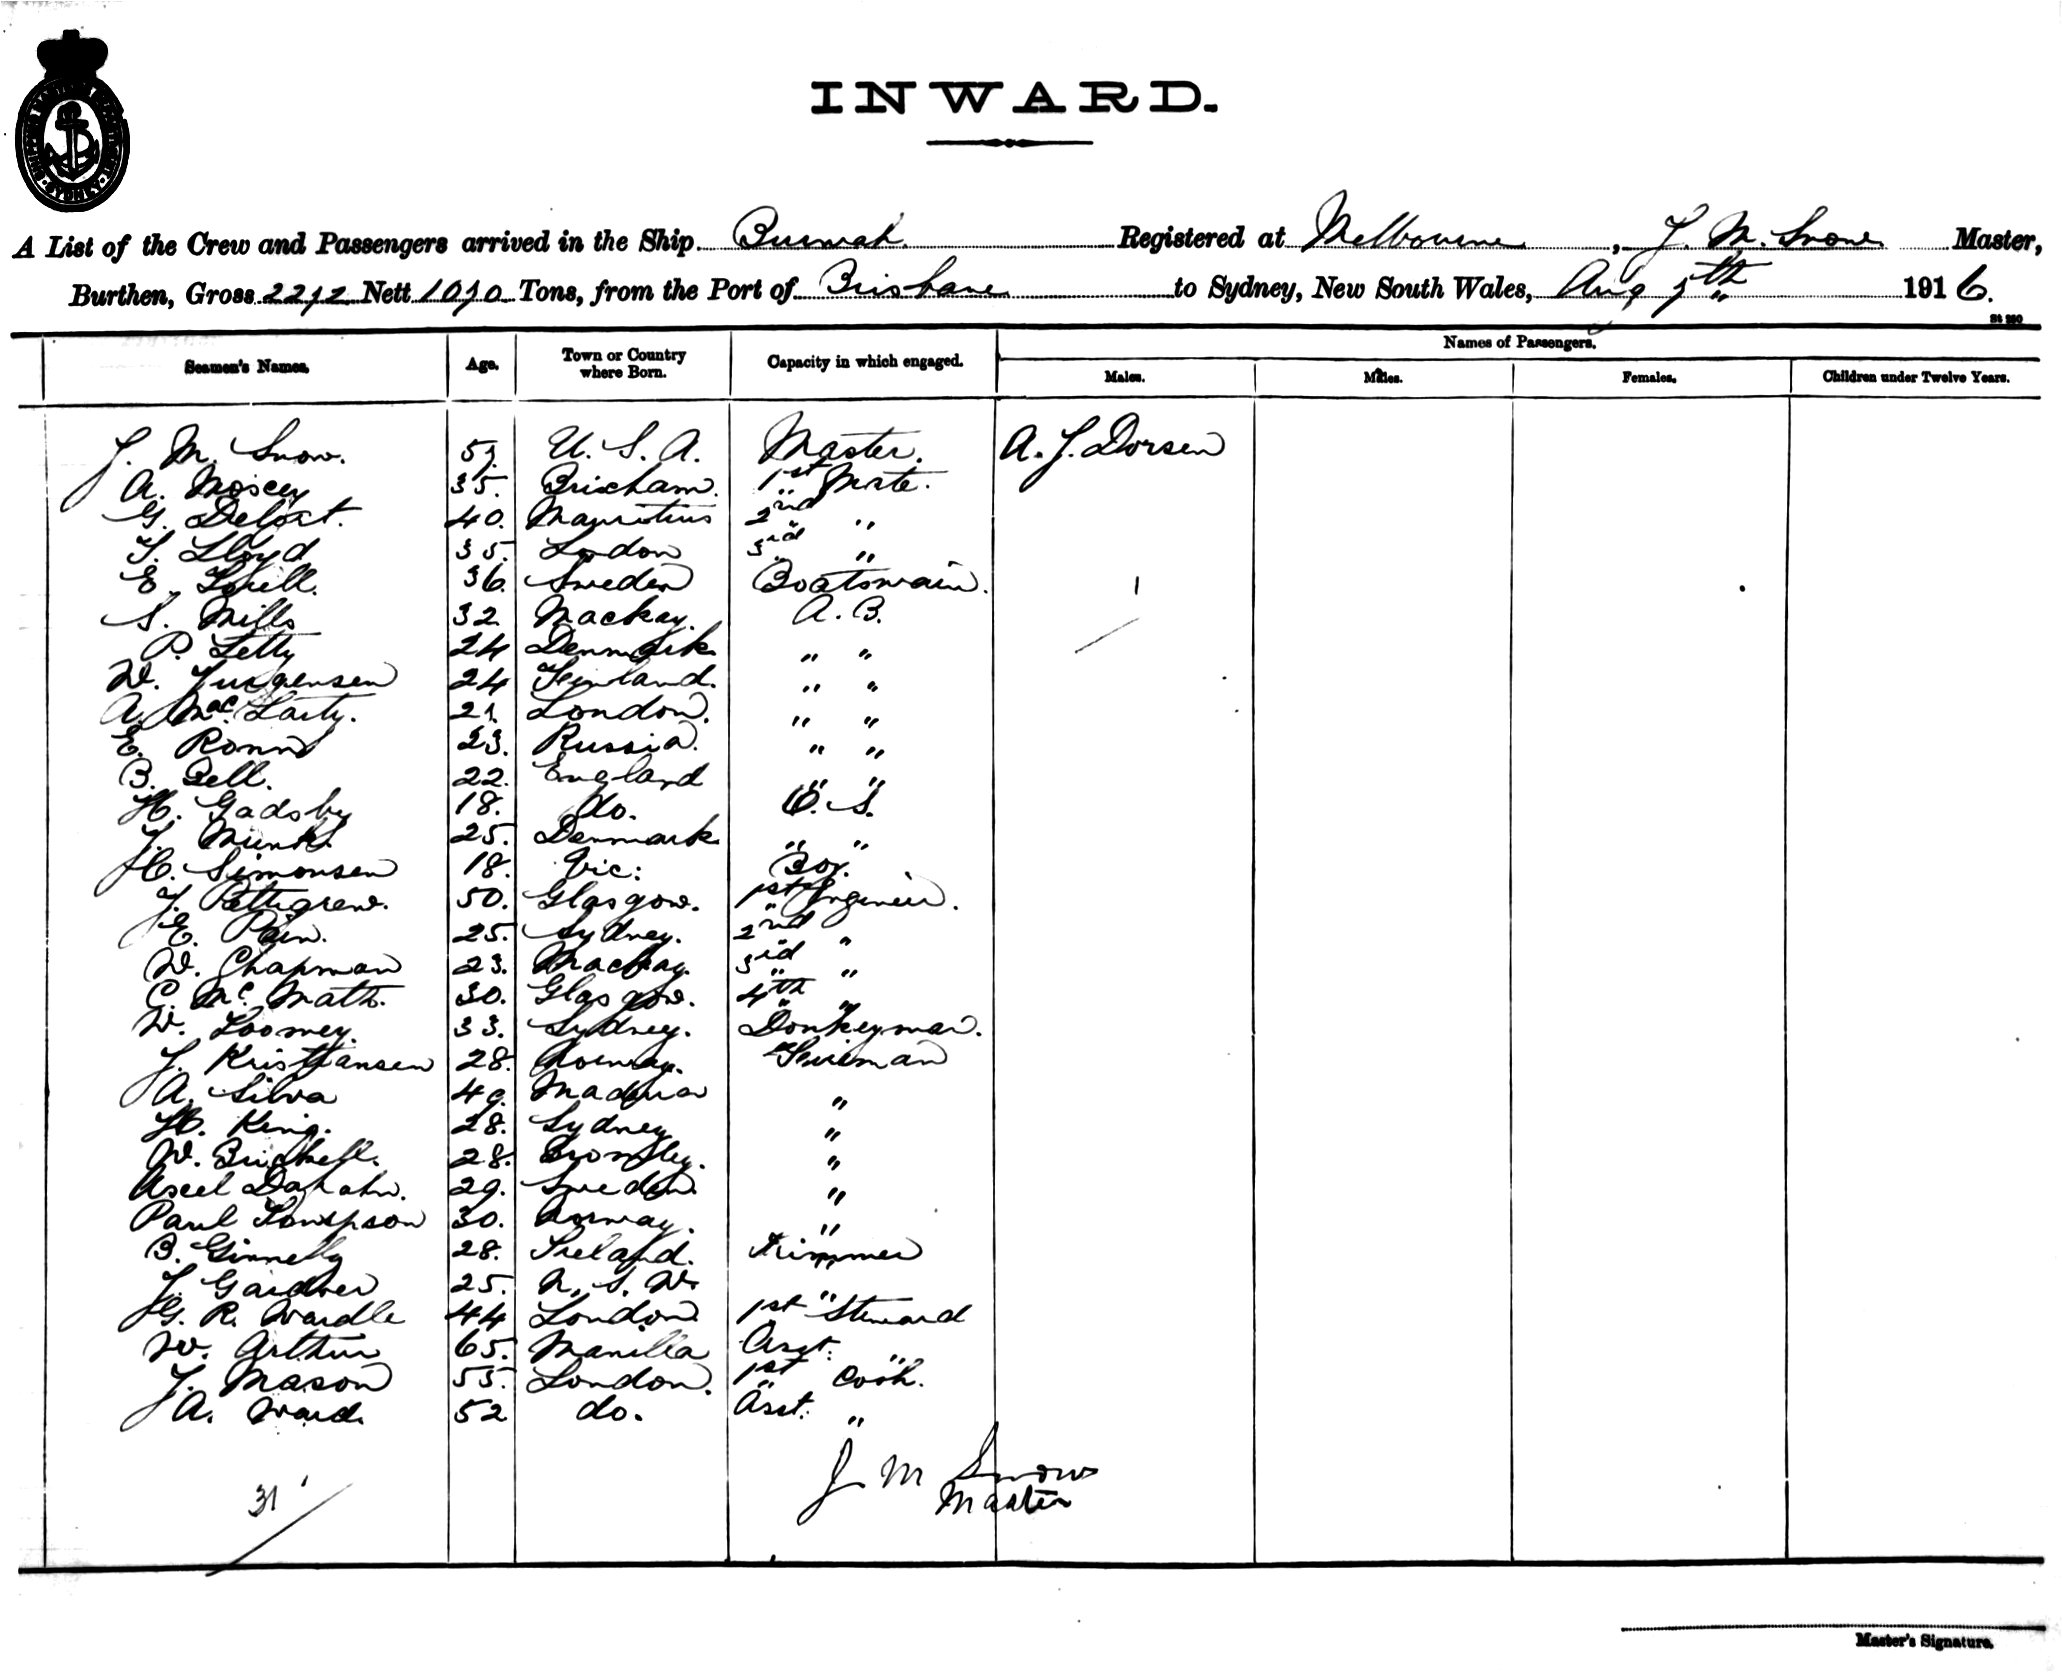 SHIPPING MASTER'S DEPARTMENT · SYDNEY ·
INWARD.
A List of the Crew and Passengers arrived in the Ship Burwah Registered at Melbourne, J. M. Snow Master,
Burthen, Gross Nett Tons, from the Port of Brisbane to Sydney, New South Wales, Aug 1916.
Seamen's Names. Age. Town or Country where Born. Capacity in which engaged. Names of Passengers.
Males. Males. Females. Children under Twelve Years.
J. M. Snow. U. S. A. Master. A. J. Dorsen
A. Moscey 35. Brixham. 1st Mate.
G. 40. Mauritius 2nd "
Lloyd 35. London 3rd "
E. 36. Sweden Boatswain.
S. Mills 32. Mackay. A. B.
P. Letty 24 Denmark " "
W. Jurgensen 24 Finland. " "
A. Mac Larty. 21. London. " "
E. Ronn 23. Russia. " "
B. Bell. 22. England " "
H. Gadsby 18. do. O. S.
J. Munk 25. Denmark " "
H. Simonsen 18. Vic: Boy.
J. Pettigrew. 50. Glasgow. 1st Engineer.
E. 25. Sydney. 2nd "
W. Chapman 23. Mackay. 3rd "
C. Mc Math. 30. Glasgow. 4th "
W. Loomey. 33. Sydney. Donkeyman.
J. Kristiansen 28. Norway. Fireman
A. Silva 49. Madeira "
H. King. 28. Sydney "
W. 28. Bromley. "
Axel 29. Sweden. "
Paul 30. Norway. "
B. Ginnelly 28. Ireland. Trimmer
J. Gardner 25. N. S. W. "
G. R. Wardle 44 London. 1st Steward
W. Arthur 65. Manilla Asst: "
J. Mason 55. London. 1st Cook.
A. Ward. 52 do. Asst: "
J M Snow
Master
31
Master's Signature.